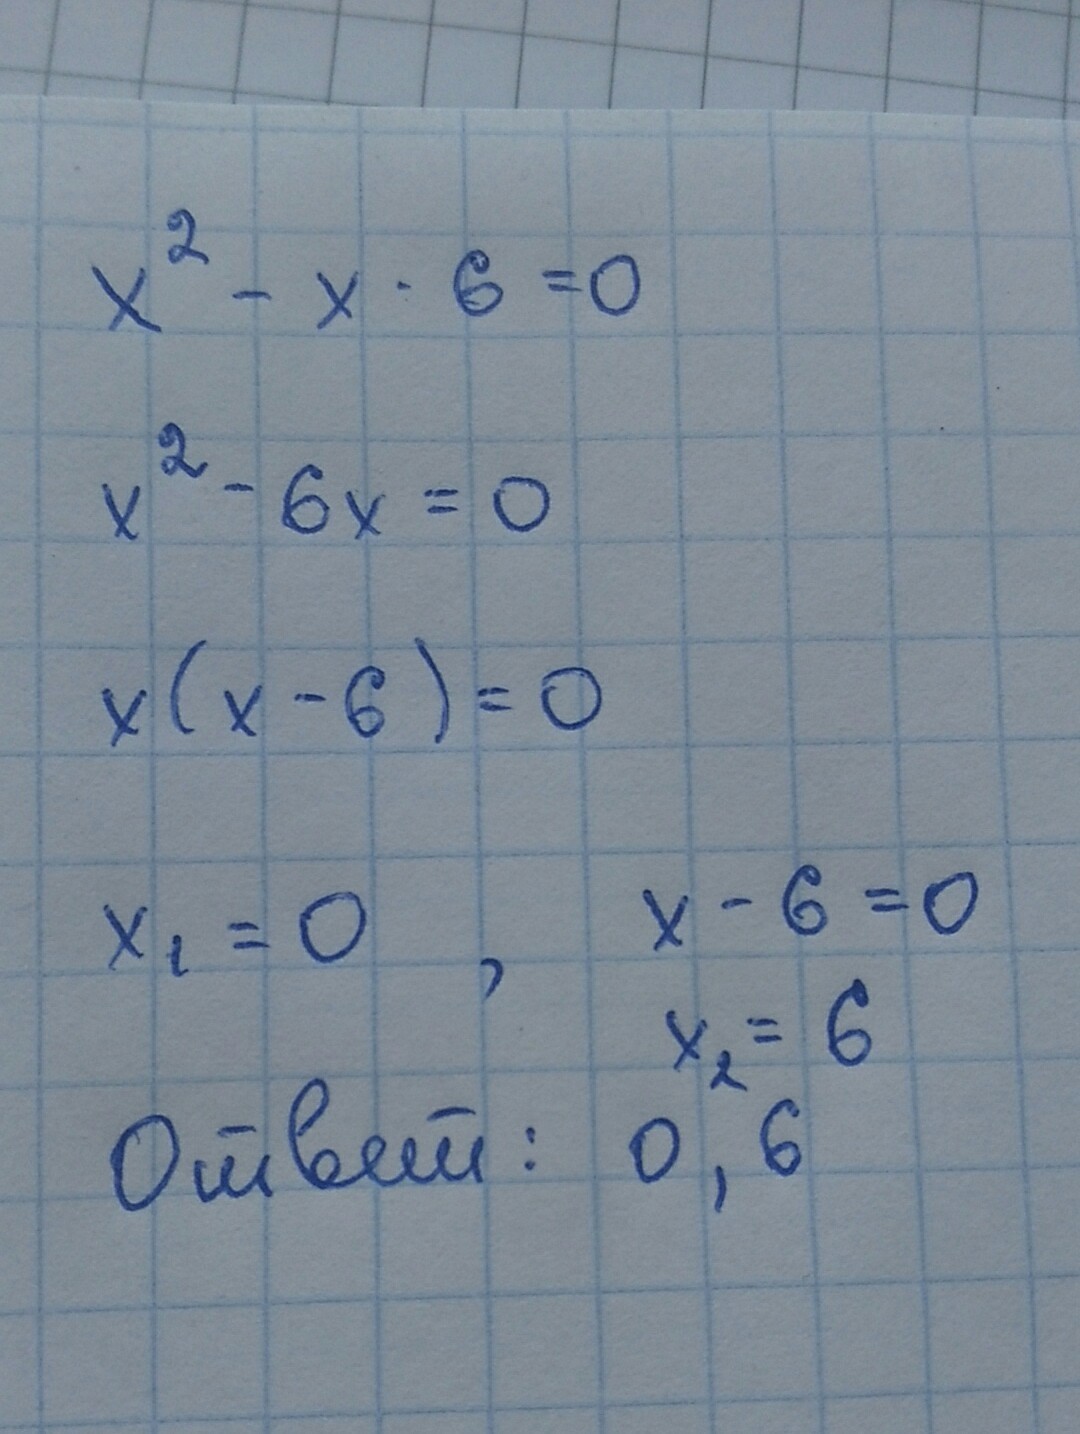 x² - x · 6 = 0
x² - 6x = 0
x(x - 6) = 0
x₁ = 0 , x - 6 = 0
x₂ = 6
Ответ: 0, 6